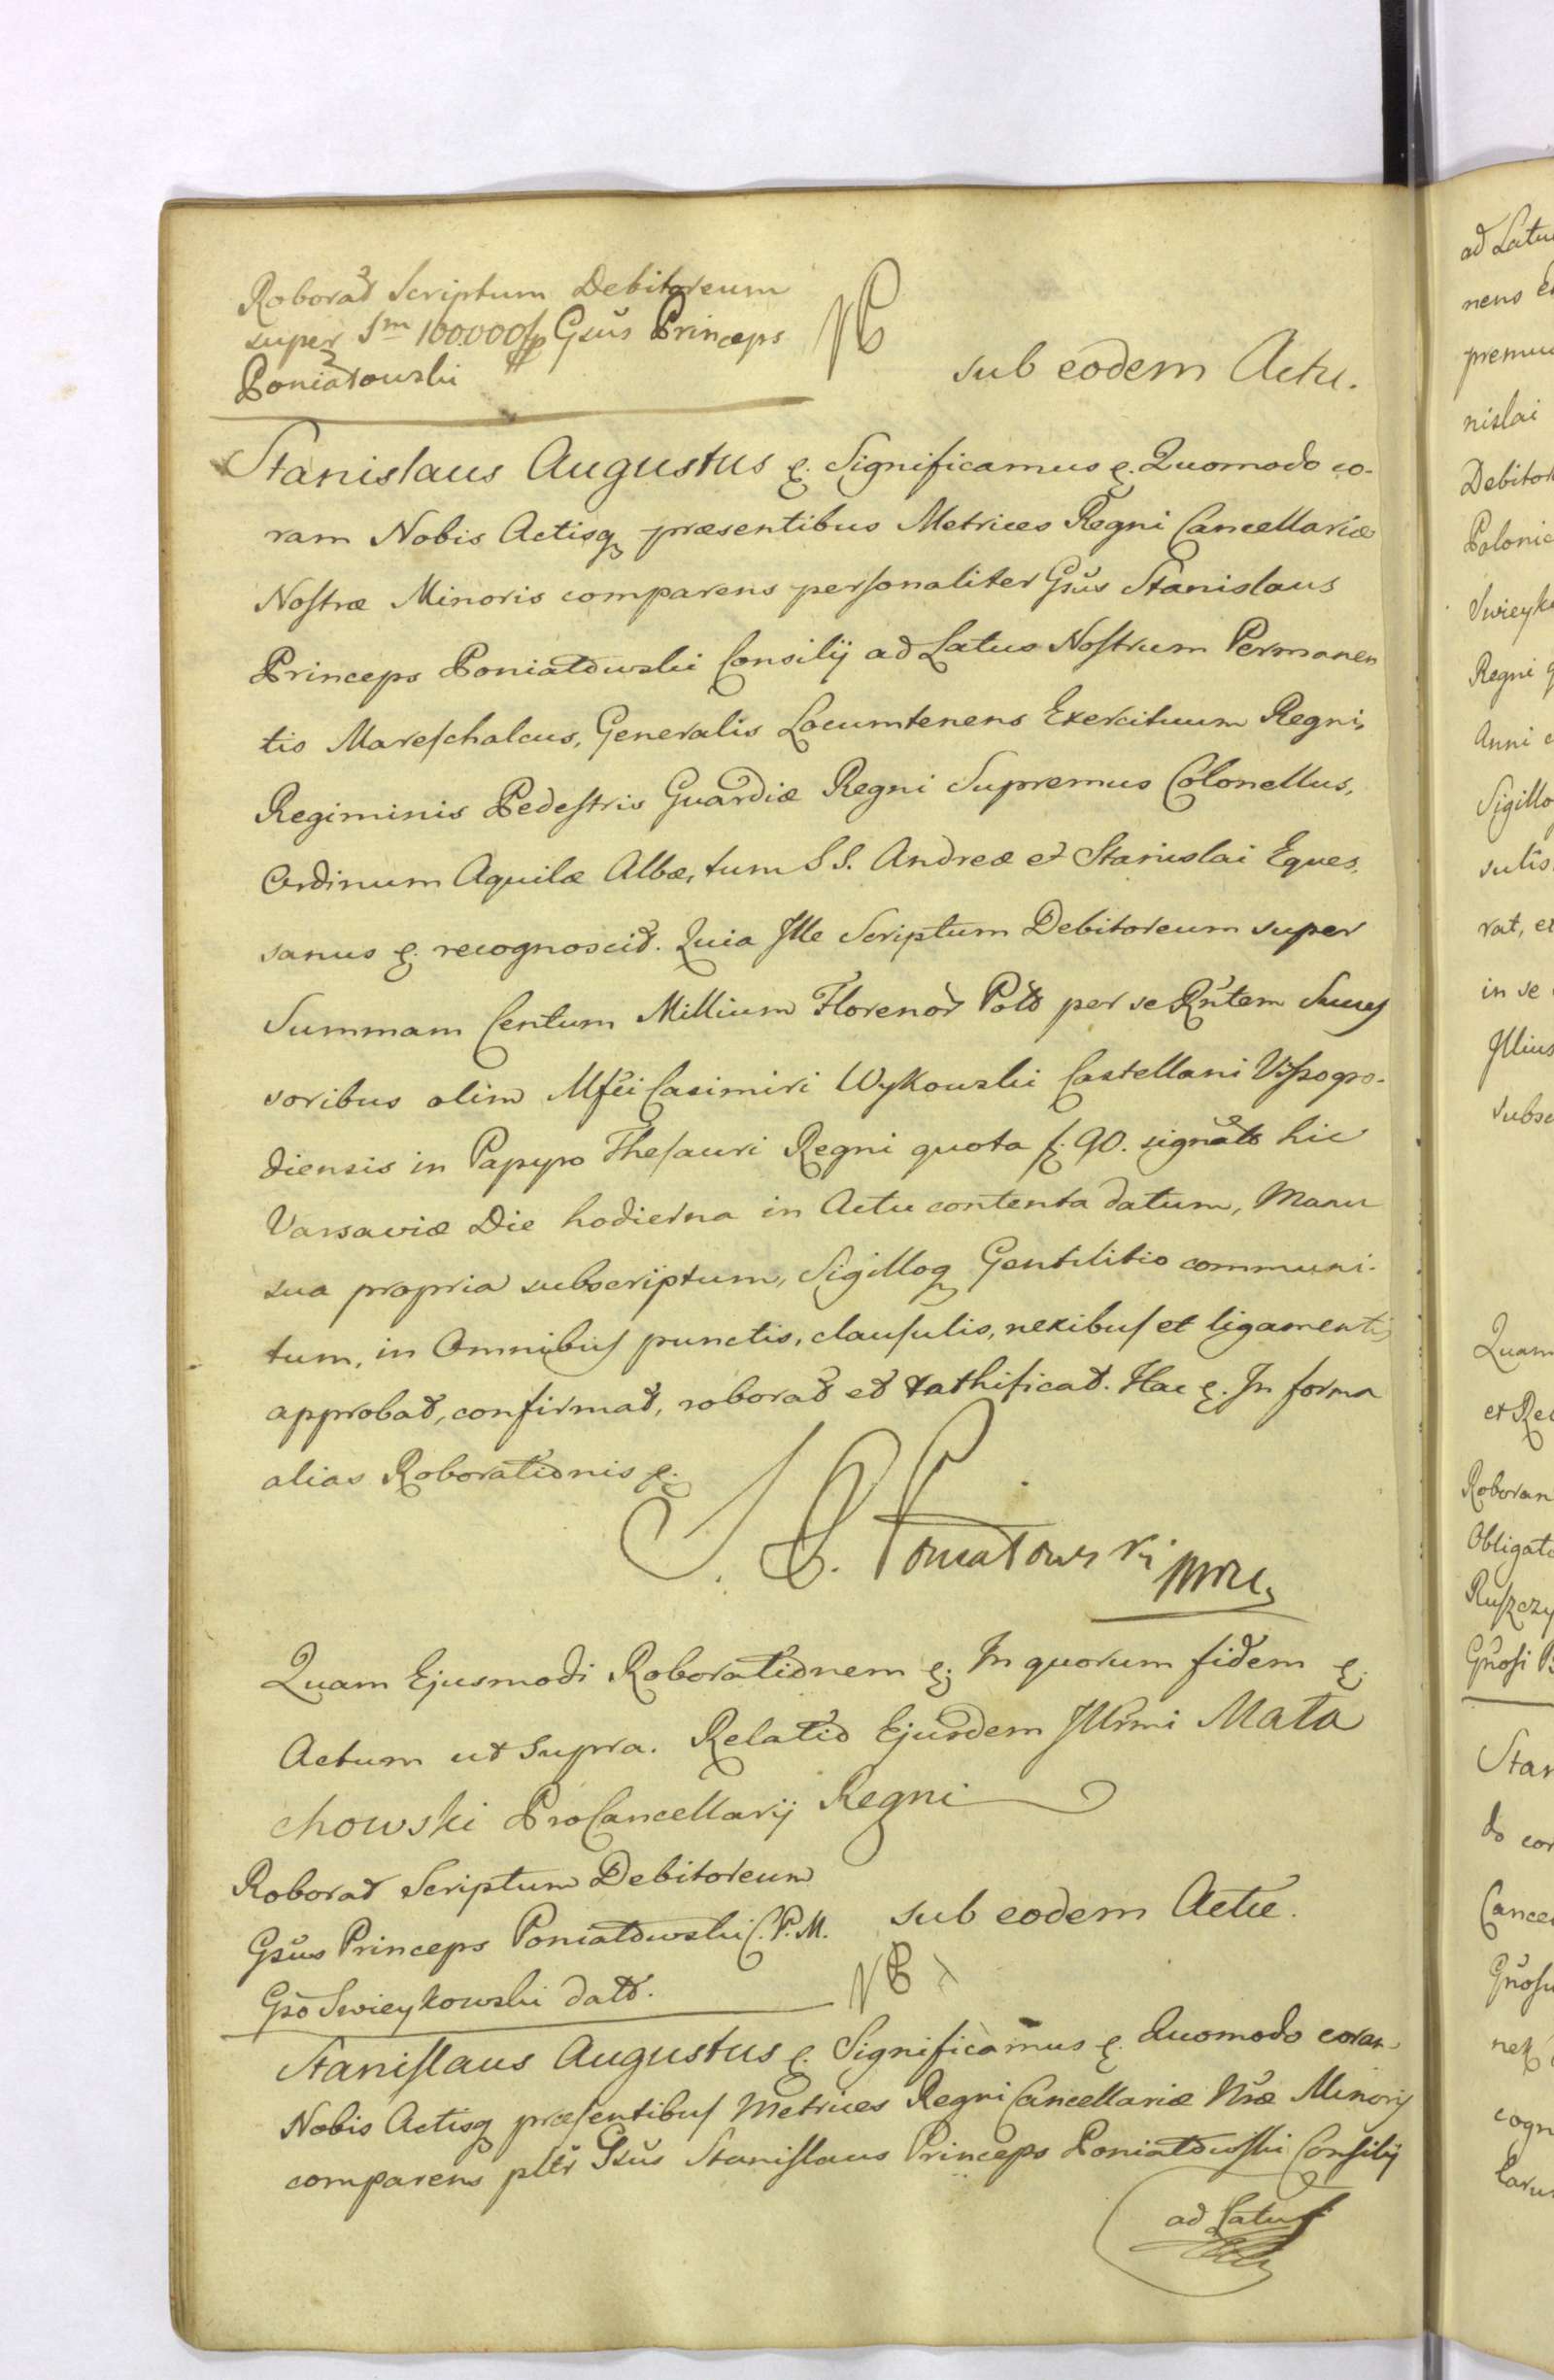 Roborat Scriptum Debitoreum
super Sm 100.000 fp Gsus Princeps
Poniatowski
NB
sub eodem Actu.
Stanislaus Augustus &. Significamus &. Quomodo co-
ram Nobis Actisq præsentibus Metrices Regni Cancellariæ
Nostræ Minoris comparens personaliter Gsus Stanislaus
Princeps Poniatowski Consilij ad Latus Nostrum Permanen
tis Mareschalcus, Generalis Locumtenens Exercituum Regni,
Regiminis Pedestris Guardiæ Regni Supremus Colonellus,
Ordinum Aquilæ Albæ, tum S S. Andreæ et Stanislai Eques,
sanus &. recognoscit. Quia Ille Scriptum Debitoreum super
Summam Centum Millium Florenor Polo per se Rntem
soribus olim Mfci Casimiri Wykowski Castellani Vissogro-
diensis in Papyro Thesauri Regni quota f. 90. signato hic
Varsaviæ Die hodierna in Actu contenta datum, Manu
sua propria subscriptum, Sigilloq Gentilitio communi-
tum, in Omnibus punctis, clausulis, nexibus et ligamentis
approbat, confirmat, roborat et rathificat. Hac &. In forma
alias Roborationis &.
S. P. Poniatowski mp
Quam Ejusmodi Roborationem &. In quorum fidem &.
Actum ut Supra. Relatio Ejusdem Illrmi Mała
chowski ProCancellarij Regni
Roborat Scriptum Debitoreum
Gsus Princeps Poniatowski C. P. M.
Gso Swieykowski dato.
sub eodem Actu.
NB
Stanislaus Augustus &. Significamus &. Quomodo coram
Nobis Actisq præsentibus Metrices Regni Cancellariæ Nræ Minoris
comparens pltr Gsus Stanislaus Princeps Poniatowski Consilij
ad Latus
ad Latu
nens
premu
nislai
Debitor
Polonic
Swieyk
Regni
Anni
Sigillo
sulis
rat, et
in se
Illius
subsc
Quam
et Rec
Roboran
Obligato
Ruszczy
Gnosi
Stan
do cor
Cancel
Gnosu
nex
cogn
Laru